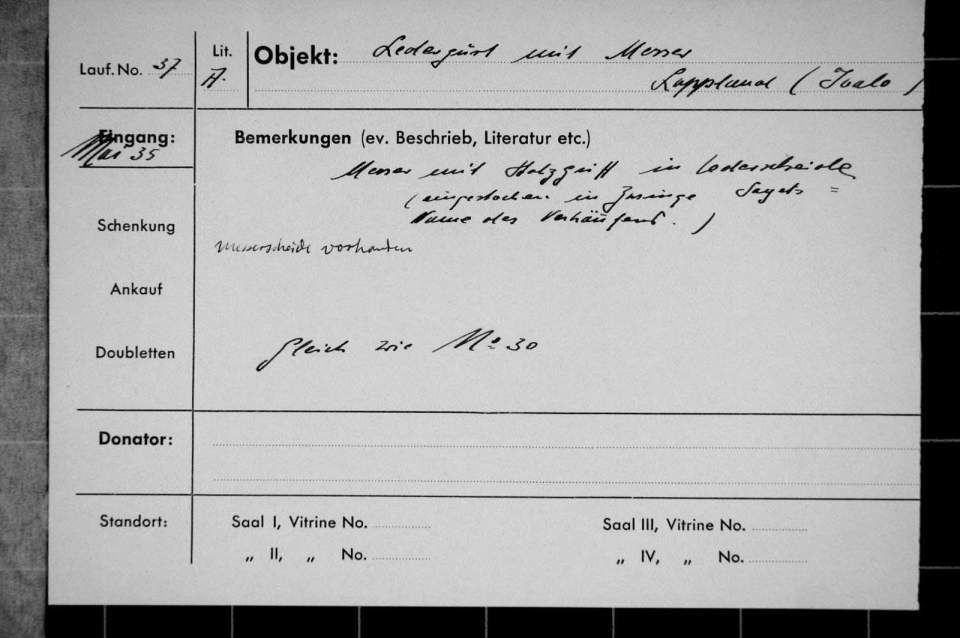 Lauf. No. 37
Lit. A.
Objekt: Ledergurt mit Messer
Lappland (Ivalo)
Eingang:
Mai 35
Bemerkungen (ev. Beschrieb, Literatur etc.)
Messer mit Holzgriff in Lederscheide
(eingestochen in
Name des Verkäufers.)
Schenkung
Messerscheide vorhanden
Ankauf
Doubletten
Gleich wie No 30
Donator:
Standort:
Saal I, Vitrine No.
Saal III, Vitrine No.
„ II, „ No.
„ IV, „ No.